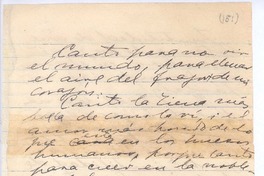 (15)
Canto para no oir
el mundo, para llenar
el aire del fragor de mi
corazón.
Canto la tierra más
bella de como la vi, i el
amor más hondo de lo
que en los huesos
humanos, porque canto
para creer en la noble